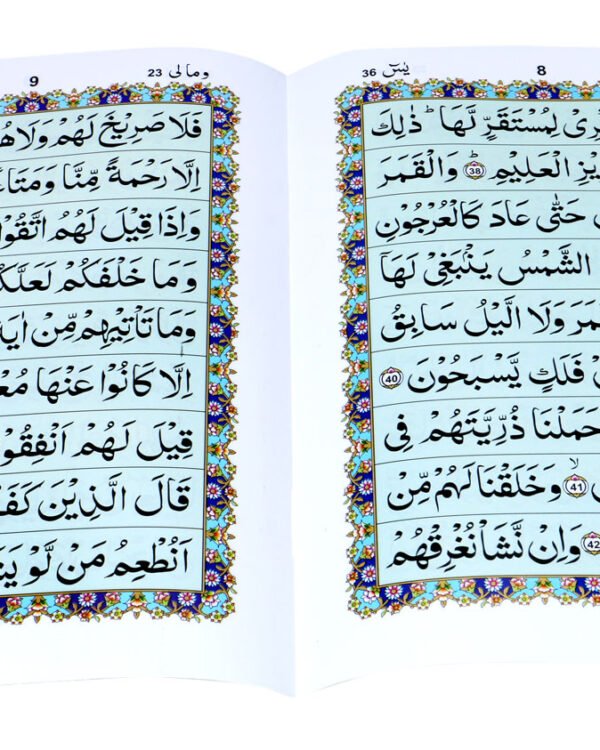 8 يٰسٓ 36
لِمُسْتَقَرٍّ لَّهَا ؕ ذٰلِكَ
الْعَلِيْمِ ؕ 38 وَالْقَمَرَ
حَتّٰى عَادَ كَالْعُرْجُوْنِ
الشَّمْسُ يَنْۢبَغِىْ لَهَاۤ
مَرَ وَلَا الَّيْلُ سَابِقُ
فَلَكٍ يَّسْبَحُوْنَ 40
حَمَلْنَا ذُرِّيَّتَهُمْ فِى
ۙ 41 وَخَلَقْنَا لَهُمْ مِّنْ
42 وَاِنْ نَّشَاْ نُغْرِقْهُمْ
ومالی 23 9
فَلَا صَرِيْخَ لَهُمْ وَلَا هُ
اِلَّا رَحْمَةً مِّنَّا وَمَتَا
وَاِذَا قِيْلَ لَهُمُ اتَّقُوْا
وَمَا خَلْفَكُمْ لَعَلَّكُ
وَمَا تَاْتِيْهِمْ مِّنْ اٰيَةٍ
اِلَّا كَانُوْا عَنْهَا مُعْ
قِيْلَ لَهُمْ اَنْفِقُوْ
قَالَ الَّذِيْنَ كَفَ
اَنُطْعِمُ مَنْ لَّوْ يَ